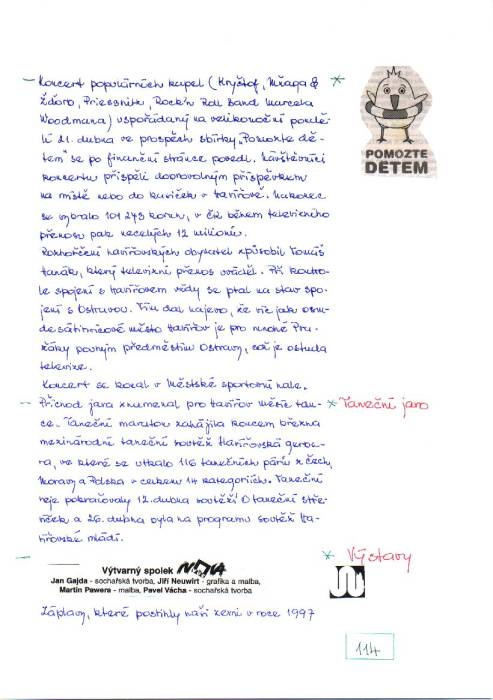 – Koncert populárních kapel (Kryštof, Mňaga & *
Žďorp, Priessnitz, Rock'n Roll Band Marcela
Woodmana) uspořádaný na velikonoční pondě-
lí 21. dubna ve prospěch sbírky „Pomozte dě-
tem" se po finanční stránce povedl. Návštěvníci
koncertu přispěli dobrovolným příspěvkem
na místě nebo do kasiček v Havířově. Nakonec
se vybralo 101 245 korun, v ČR během televizního
přenosu pak necelých 12 milionů.
POMOZTE
DĚTEM
Rozhořčení havířovských obyvatel způsobil Tomáš
Hanák, který televizní přenos uváděl. Při kontro-
le spojení s Havířovem vždy se ptal na stav spo-
jení s Ostravou. Tím dal najevo, že víc jak osm-
desátitisícové město Havířov je pro mnohé Pra-
žáky pouhým předměstím Ostravy, což je ostuda
televize.
Koncert se konal v Městské sportovní hale.
– Příchod jara znamenal pro Havířov měsíc tan- * Taneční jaro
ce. Taneční maraton zahájila koncem března
mezinárodní taneční soutěž Havířovská gerbe-
ra, ve které se utkalo 116 tanečních párů z Čech,
Moravy a Polska v celkem 14 kategoriích. Taneční
reje pokračovaly 12. dubna soutěží O taneční stře-
víček a 26. dubna byla na programu soutěž Ha-
vířovské mládí.
– * Výstavy
Výtvarný spolek
Jan Gajda - sochařská tvorba, Jiří Neuwirt - grafika a malba,
Martin Pawera - malba, Pavel Vácha - sochařská tvorba
Záplavy, které postihly naši zemi v roce 1997
114